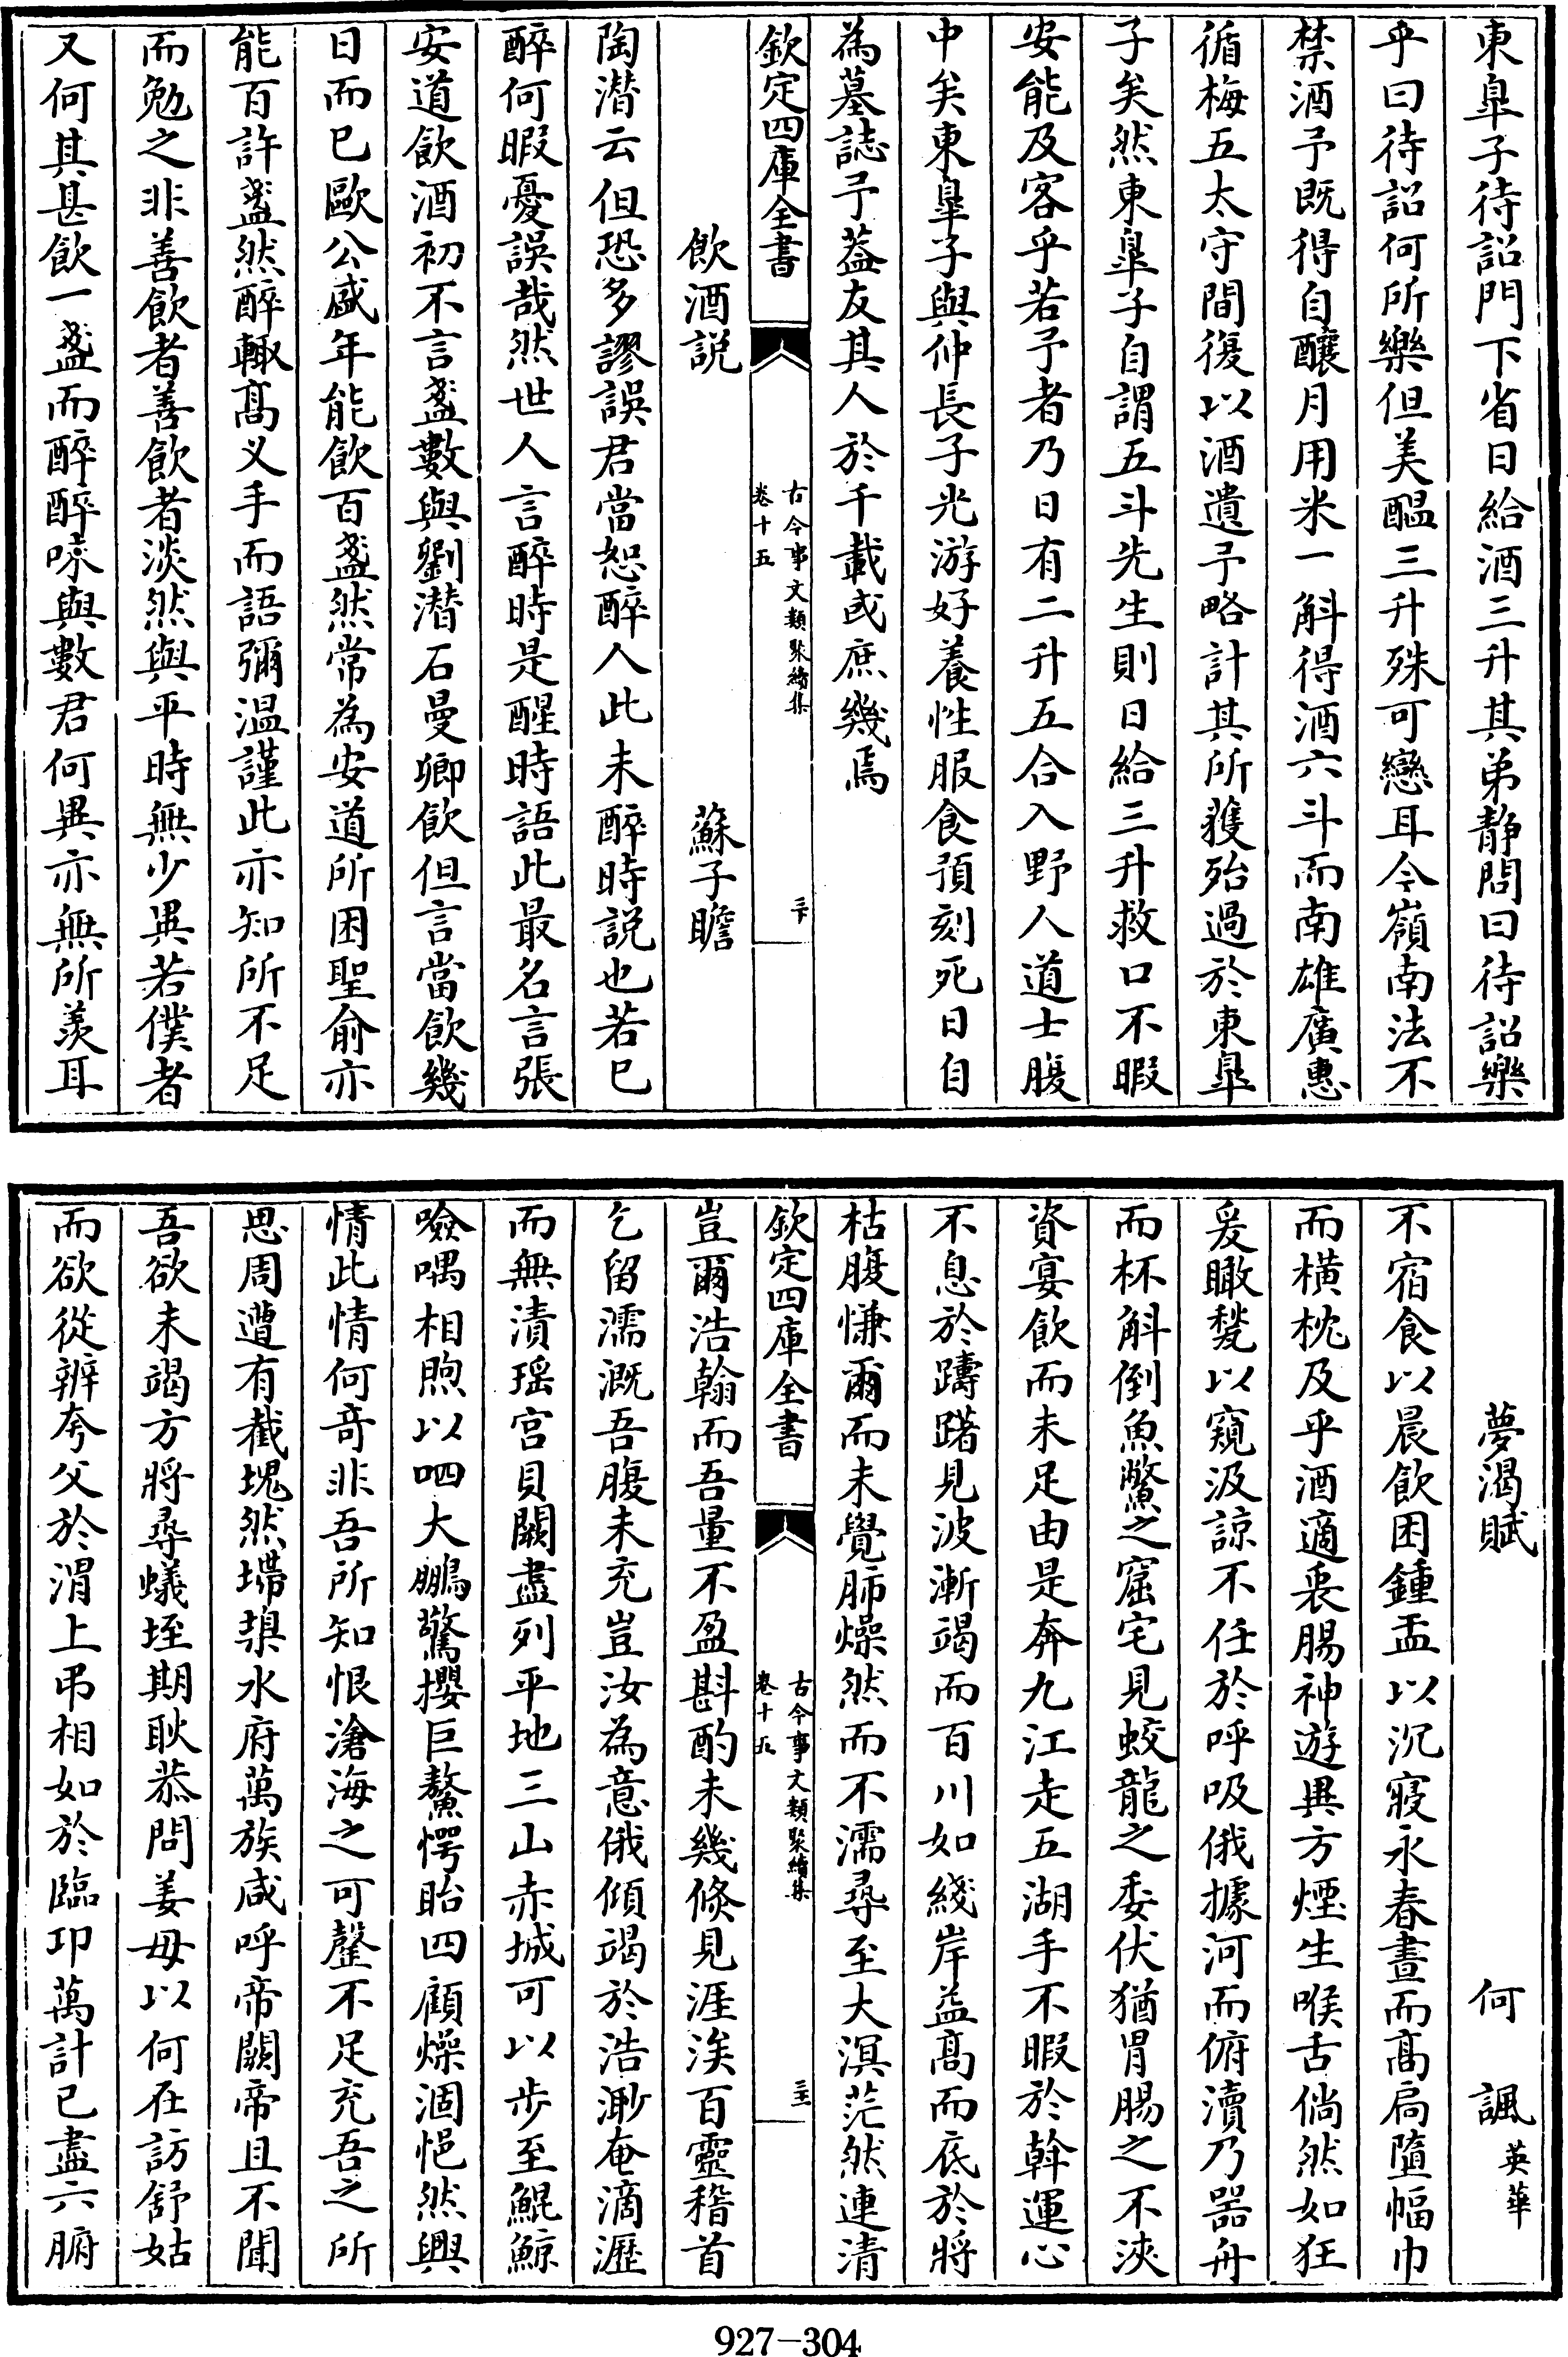 東臯子待詔門下省日給酒三升其弟靜問曰待詔樂
乎曰待詔何所樂但美醖三升殊可戀耳今嶺南法不
禁酒予既得自釀月用米一斛得酒六斗而南雄廣惠
循梅五太守間復以酒遺予略計其所獲殆過於東臯
子矣然東臯子自謂五斗先生則日給三升救口不暇
安能及客乎若予者乃日有二升五合入野人道士腹
中矣東臯子與仲長子光游好養性服食預刻死日自
為墓誌予葢友其人於千載或庶幾焉
欽定四庫全書
古今事文類聚續集
卷十五
三十
飲酒説
蘇子瞻
陶潜云但恐多謬誤君當恕醉人此未醉時説也若已
醉何暇憂誤哉然世人言醉時是醒時語此最名言張
安道飲酒初不言盞數與劉潜石曼卿飲但言當飲幾
日而已歐公盛年能飲百盞然常為安道所困聖俞亦
能百許盞然醉輙髙义手而語彌温謹此亦知所不足
而勉之非善飲者善飲者淡然與平時無少異若僕者
又何其甚飲一盞而醉醉味與數君何異亦無所羡耳
夢渴賦
何諷英華
不宿食以晨飲困鍾盂以沉寢永春晝而髙扃墮幅巾
而横枕及乎酒適衷腸神遊異方煙生喉舌倘然如狂
爰瞰甃以窺汲諒不任於呼吸俄據河而俯瀆乃器舟
而杯斛倒魚鼈之窟宅見蛟龍之委伏猶胃腸之不浹
資宴飲而未足由是奔九江走五湖手不暇於斡運心
不息於躊躇見波漸竭而百川如綫岸益髙而底於將
枯腹慊爾而未覺肺燥然而不濡尋至大溟茫然連清
欽定四庫全書
古今事文類聚續集
卷十五
三十一
豈爾浩翰而吾量不盈斟酌未幾倐見涯涘百靈稽首
乞留濡溉吾腹未充豈汝為意俄傾竭於浩渺奄滴瀝
而無漬瑶宫貝闕盡列平地三山赤城可以步至鯤鯨
噞喁相煦以呬大鵬驚攖巨鰲愕眙四顧燥涸悒然興
情此情何竒非吾所知恨滄海之可罄不足充吾之所
思周遭有截塊然墆㙞水府萬族咸呼帝闕帝且不聞
吾欲未竭方將尋蟻垤期耿恭問姜毋以何在訪舒姑
而欲從辨夸父於渭上弔相如於臨卭萬計已盡六腑
927-304